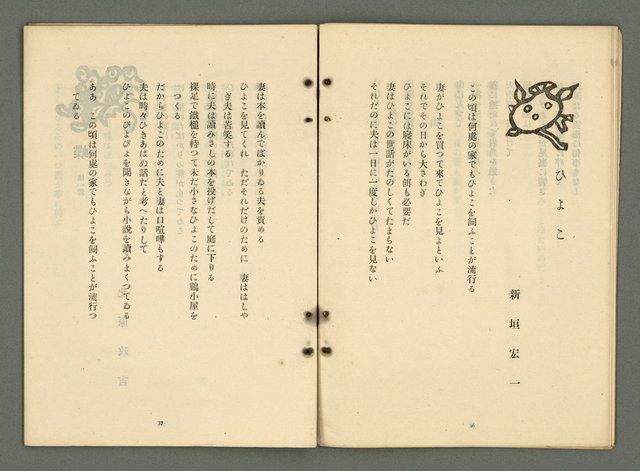 ひよこ
新垣宏一
この頃は何處の家でもひよこを飼ふことが流行る
妻がひよこを買つて來てひよこを見よといふ
それでその日から大さわぎ
ひよこには寢床がいる餌も必要だ
妻はひよこの世話がたのしくてたまらない
それだのに夫は一日に一度しかひよこを見ない
36
妻は本を讀んでばかりゐる夫を責める
ひよこを見てくれ　ただそれだけのために　妻ははしや
ぎ夫は苦笑する
時に夫は讀みさしの本を投げだして庭に下りる
裸足で鐵槌を持つて未だ小さなひよこのために鷄小屋を
つくる
だからひよこのために夫と妻は口喧嘩もする
夫は時々ひきあはぬ話だと考へたりして
ひよこのぴよぴよを聞きながら小說を讀みまくつてゐる
ああ　この頃は何處の家でもひよこを飼ふことが流行つ
てゐる
37